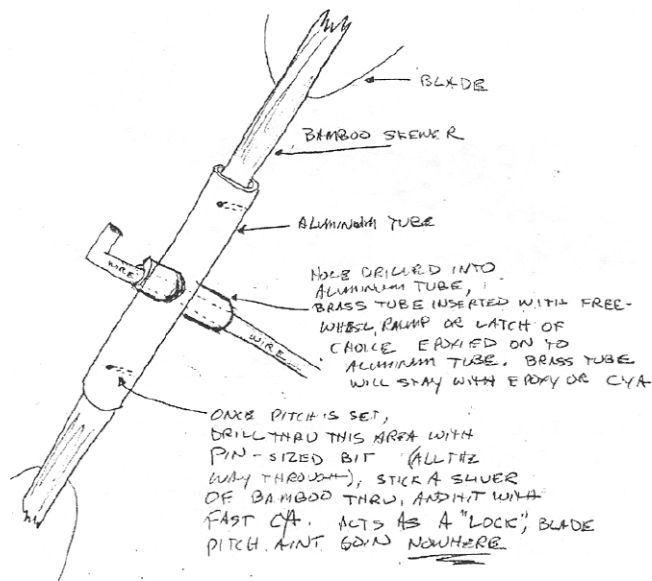 BLADE
BAMBOO SKEWER
ALUMINUM TUBE
WIRE
HOLE DRILLED INTO
ALUMINUM TUBE,
BRASS TUBE INSERTED WITH FREE-
WHEEL RAMP OR LATCH OF
CHOICE EPOXIED ON TO
ALUMINUM TUBE. BRASS TUBE
WILL STAY WITH EPOXY OR CYA
WIRE
ONCE PITCH IS SET,
DRILL THRU THIS AREA WITH
PIN-SIZED BIT (ALL THE
WAY THROUGH), STICK A SLIVER
OF BAMBOO THRU, AND HIT WITH
FAST CYA. ACTS AS A "LOCK", BLADE
PITCH AINT GOIN NOWHERE